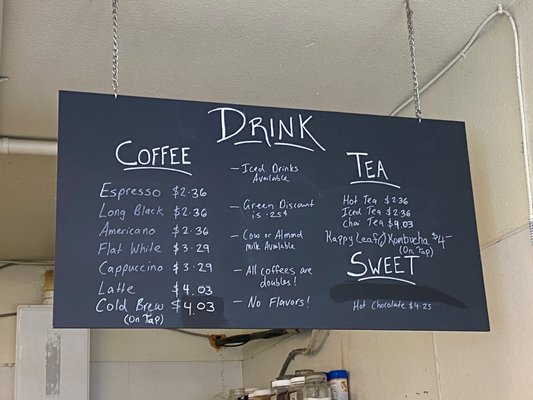 DRINK
COFFEE
Espresso $2.36
Long Black $2.36
Americano $2.36
Flat White $3.29
Cappuccino $3.29
Latte $4.03
Cold Brew $4.03
(On Tap)
– Iced Drinks
Available
– Green Discount
is .25¢
– Cow or Almond
Milk Available
– All coffees are
doubles!
– No Flavors!
TEA
Hot Tea $2.36
Iced Tea $2.36
Chai Tea $4.03
Happy Leaf Kombucha $4-
(On Tap)
SWEET
Hot Chocolate $4.25